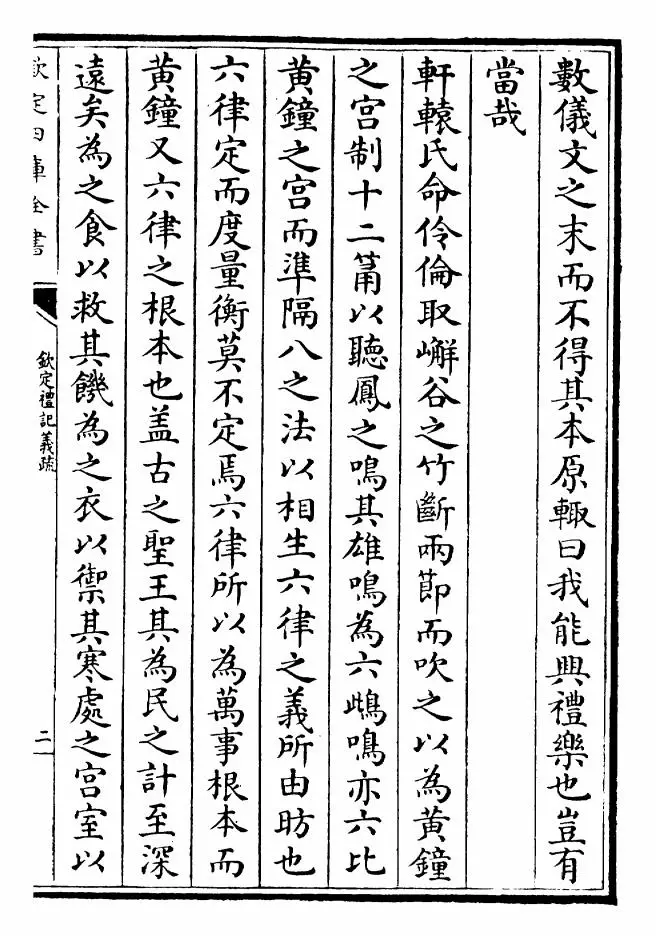 數儀文之末而不得其本原輙曰我能興禮樂也豈有
當哉
軒轅氏命伶倫取嶰谷之竹斷兩節而吹之以為黃鐘
之宫制十二筩以聽鳳之鳴其雄鳴為六鴟鳴亦六比
黃鐘之宫而準隔八之法以相生六律之義所由昉也
六律定而度量衡莫不定焉六律所以為萬事根本而
黃鐘又六律之根本也盖古之聖王其為民之計至深
遠矣為之食以救其饑為之衣以禦其寒處之宫室以
欽定四庫全書
欽定禮記義疏
二